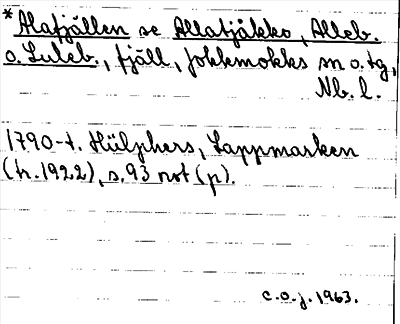 *Alafjällen se Allatjåkko, Alleb.
o. Luleb., fjäll, Jokkmokks sn o. tg,
Nb. l.
1790-t. Hülphers, Lappmarken
(tr. 1922), s. 93 not (p).
C.O.J. 1963.